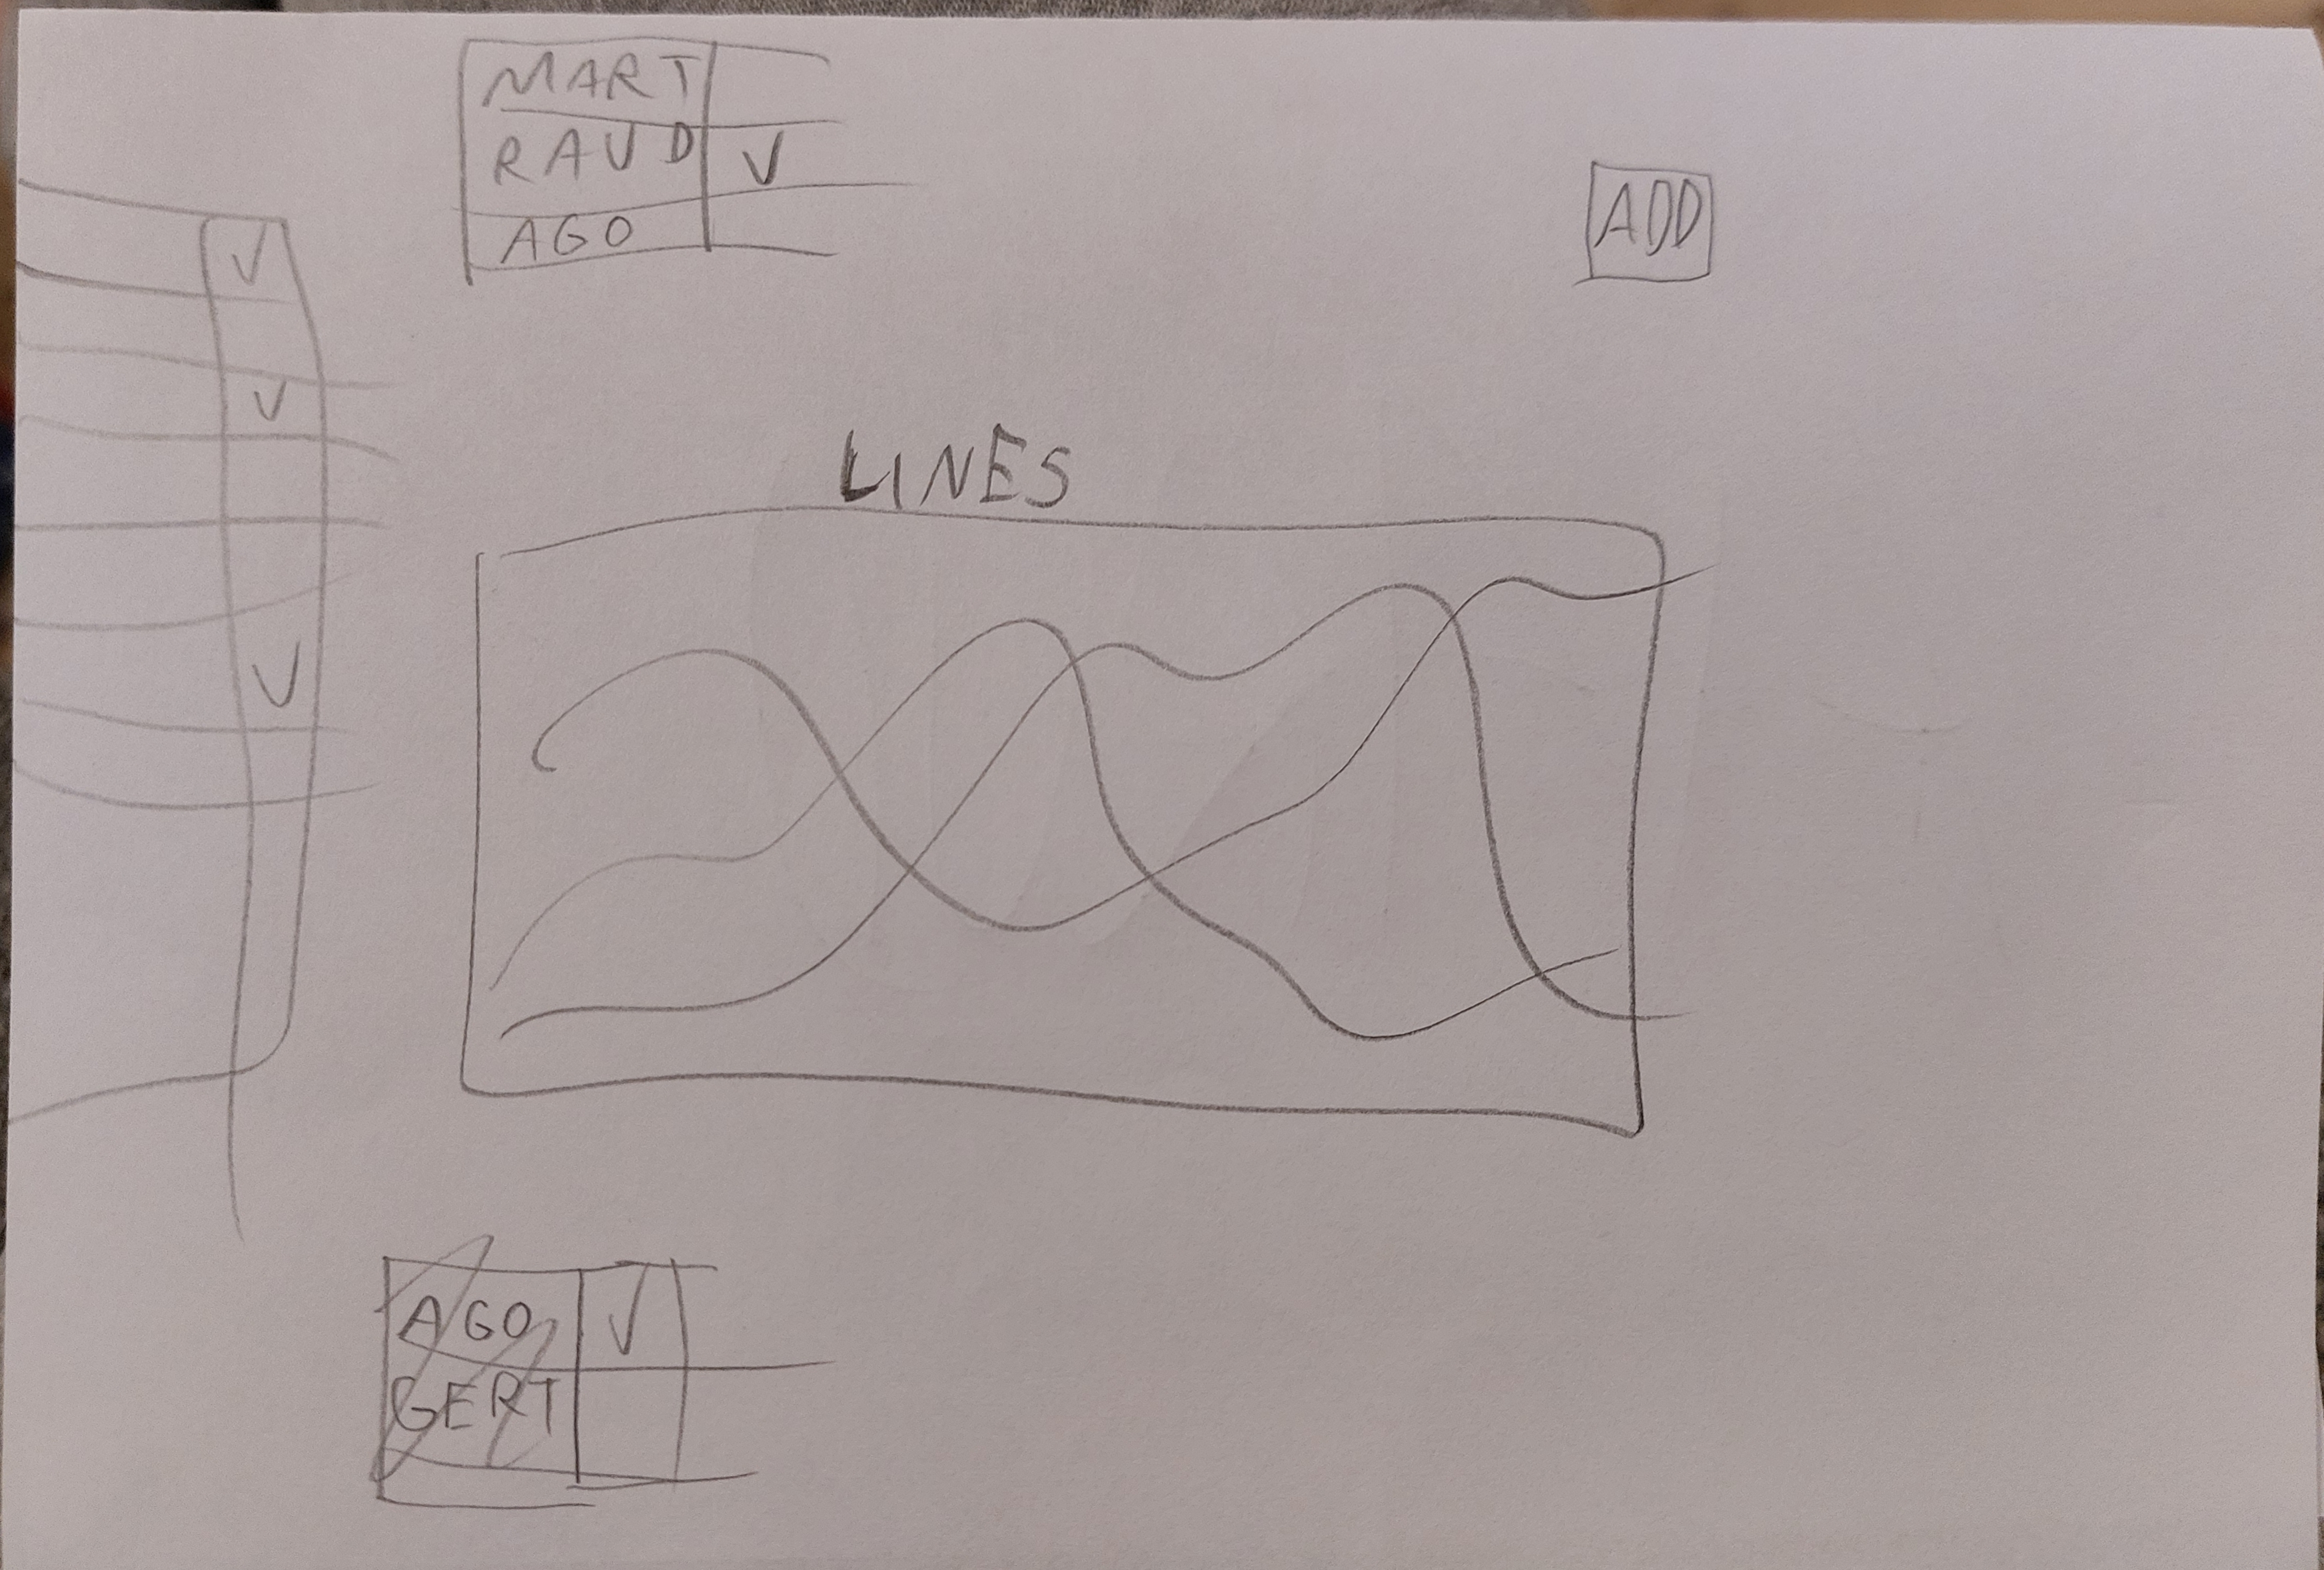 MART
RAUD V
AGO
ADD
V
V
V
LINES
AGO V
GERT